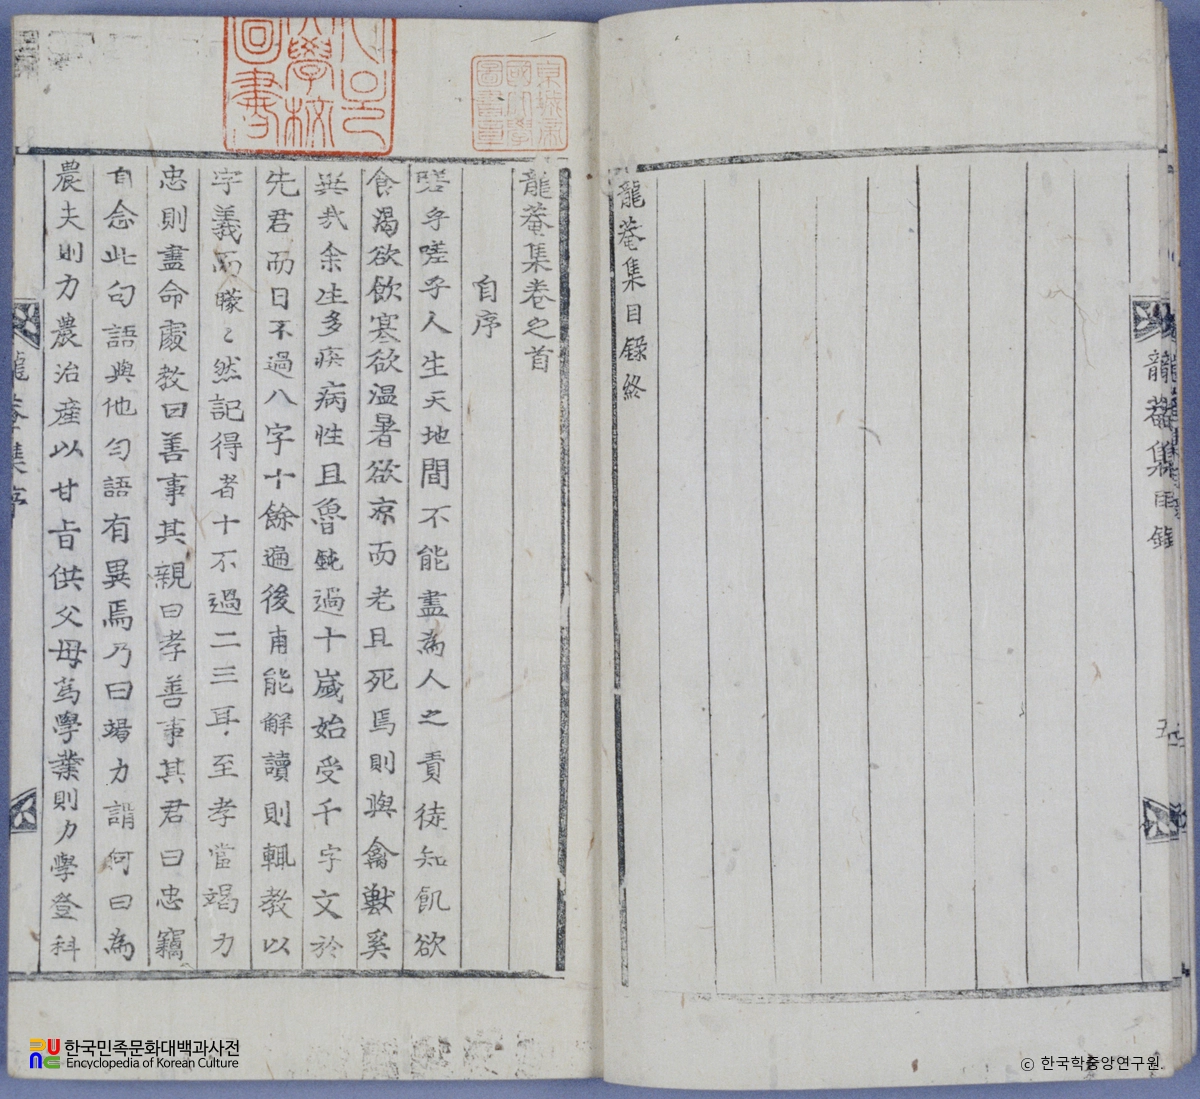 龍菴集目錄終
龍菴集目錄
五
龍菴集卷之首
自序
嗟乎嗟乎人生天地間不能盡為人之責徒知飢欲
食渴欲飮寒欲温暑欲凉而老且死焉則與禽獸奚
異哉余生多疾病性且魯鈍過十歲始受千字文於
先君而日不過八字十餘遍後甫能解讀則輒教以
字義而矇〻然記得者十不過二三耳至孝當竭力
忠則盡命處教曰善事其親曰孝善事其君曰忠竊
自念此句語與他句語有異焉乃曰竭力謂何曰為
農夫則力農治產以甘旨供父母為學業則力學登科
龍菴集序
京城帝
國大學
圖書章
한국민족문화대백과사전
Encyclopedia of Korean Culture
ⓒ 한국학중앙연구원.